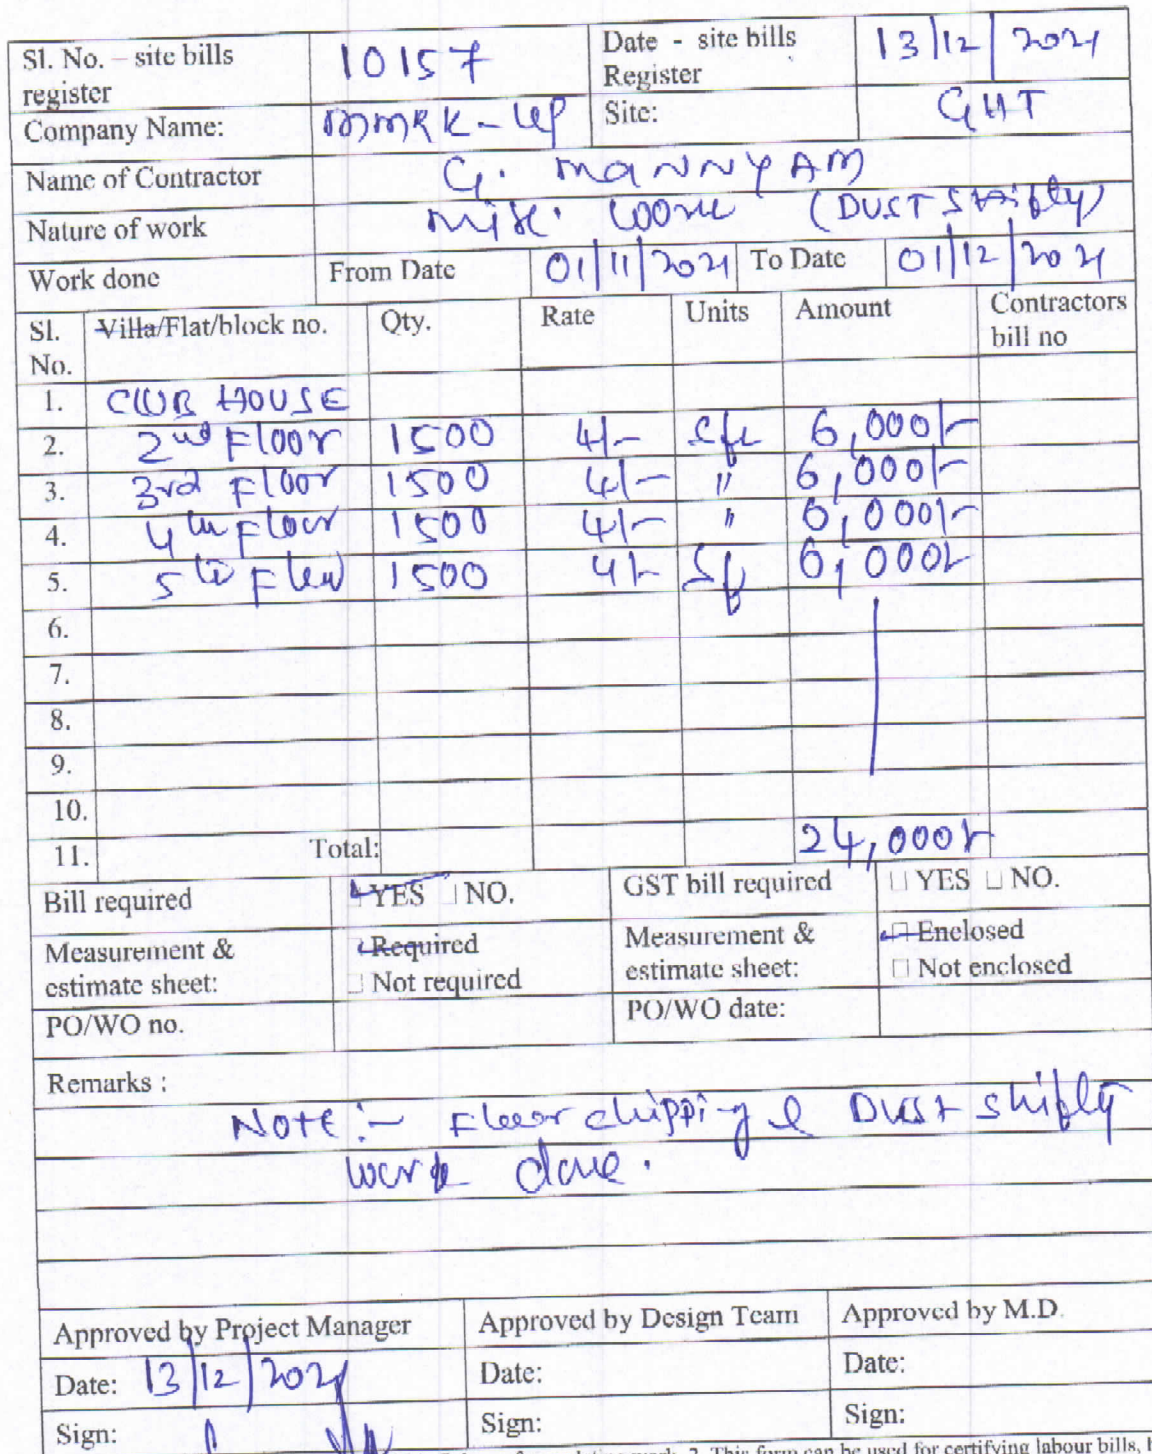 Sl. No. – site bills register 10157 Date - site bills Register 13/12/2021
Company Name: MMRK-LLP Site: GHT
Name of Contractor G. MANNYAM
Nature of work Misc. work (DUST Shifty)
Work done From Date 01/11/2021 To Date 01/12/2021
Sl. No. Villa/Flat/block no. Qty. Rate Units Amount Contractors bill no
1. CLUB HOUSE
2. 2nd Floor 1500 4/- sft 6,000/-
3. 3rd Floor 1500 4/- " 6,000/-
4. 4th Floor 1500 4/- " 6,000/-
5. 5th Floor 1500 4/- Sft 6,000/-
6.
7.
8.
9.
10.
11. Total: 24,000/-
Bill required YES NO. GST bill required YES NO.
Measurement & estimate sheet: Required Not required Measurement & estimate sheet: Enclosed Not enclosed
PO/WO no. PO/WO date:
Remarks :
Note:- Floor chipping & Dust shifty
work done.
Approved by Project Manager Approved by Design Team Approved by M.D.
Date: 13/12/2021 Date: Date:
Sign: Sign: Sign:
2. This form can be used for certifying labour bills,